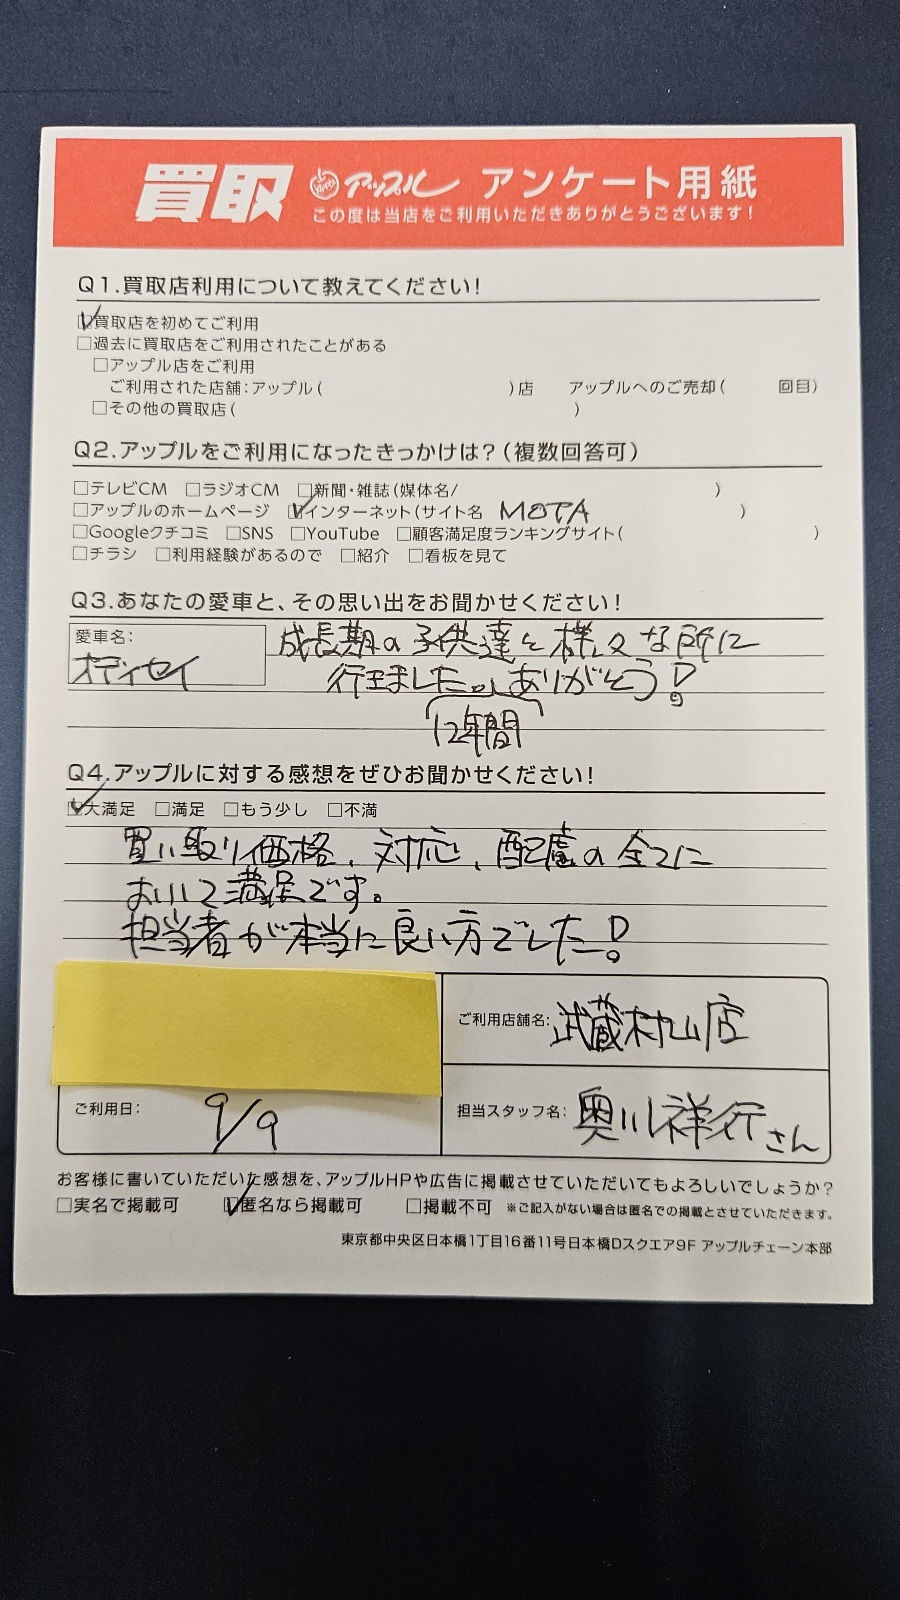 買取 アップル アンケート用紙
この度は当店をご利用いただきありがとうございます!
Q1.買取店利用について教えてください!
☑買取店を初めてご利用
□過去に買取店をご利用されたことがある
□アップル店をご利用
ご利用された店舗:アップル( )店 アップルへのご売却( 回目)
□その他の買取店( )
Q2.アップルをご利用になったきっかけは?(複数回答可)
□テレビCM □ラジオCM □新聞・雑誌(媒体名/ )
□アップルのホームページ ☑インターネット(サイト名 MOTA )
□Googleクチコミ □SNS □YouTube □顧客満足度ランキングサイト( )
□チラシ □利用経験があるので □紹介 □看板を見て
Q3.あなたの愛車と、その思い出をお聞かせください!
愛車名:
オデッセイ
成長期の子供達と様々な所に
行きました。ありがとう!
(12年間)
Q4.アップルに対する感想をぜひお聞かせください!
☑大満足 □満足 □もう少し □不満
買い取り価格、対応、配慮の全てに
おいて満足です。
担当者が本当に良い方でした!
ご利用店舗名: 武蔵村山店
ご利用日: 9/9
担当スタッフ名: 奥川祥行さん
お客様に書いていただいた感想を、アップルHPや広告に掲載させていただいてもよろしいでしょうか?
□実名で掲載可 ☑匿名なら掲載可 □掲載不可 ※ご記入がない場合は匿名での掲載とさせていただきます。
東京都中央区日本橋1丁目16番11号日本橋Dスクエア9F アップルチェーン本部